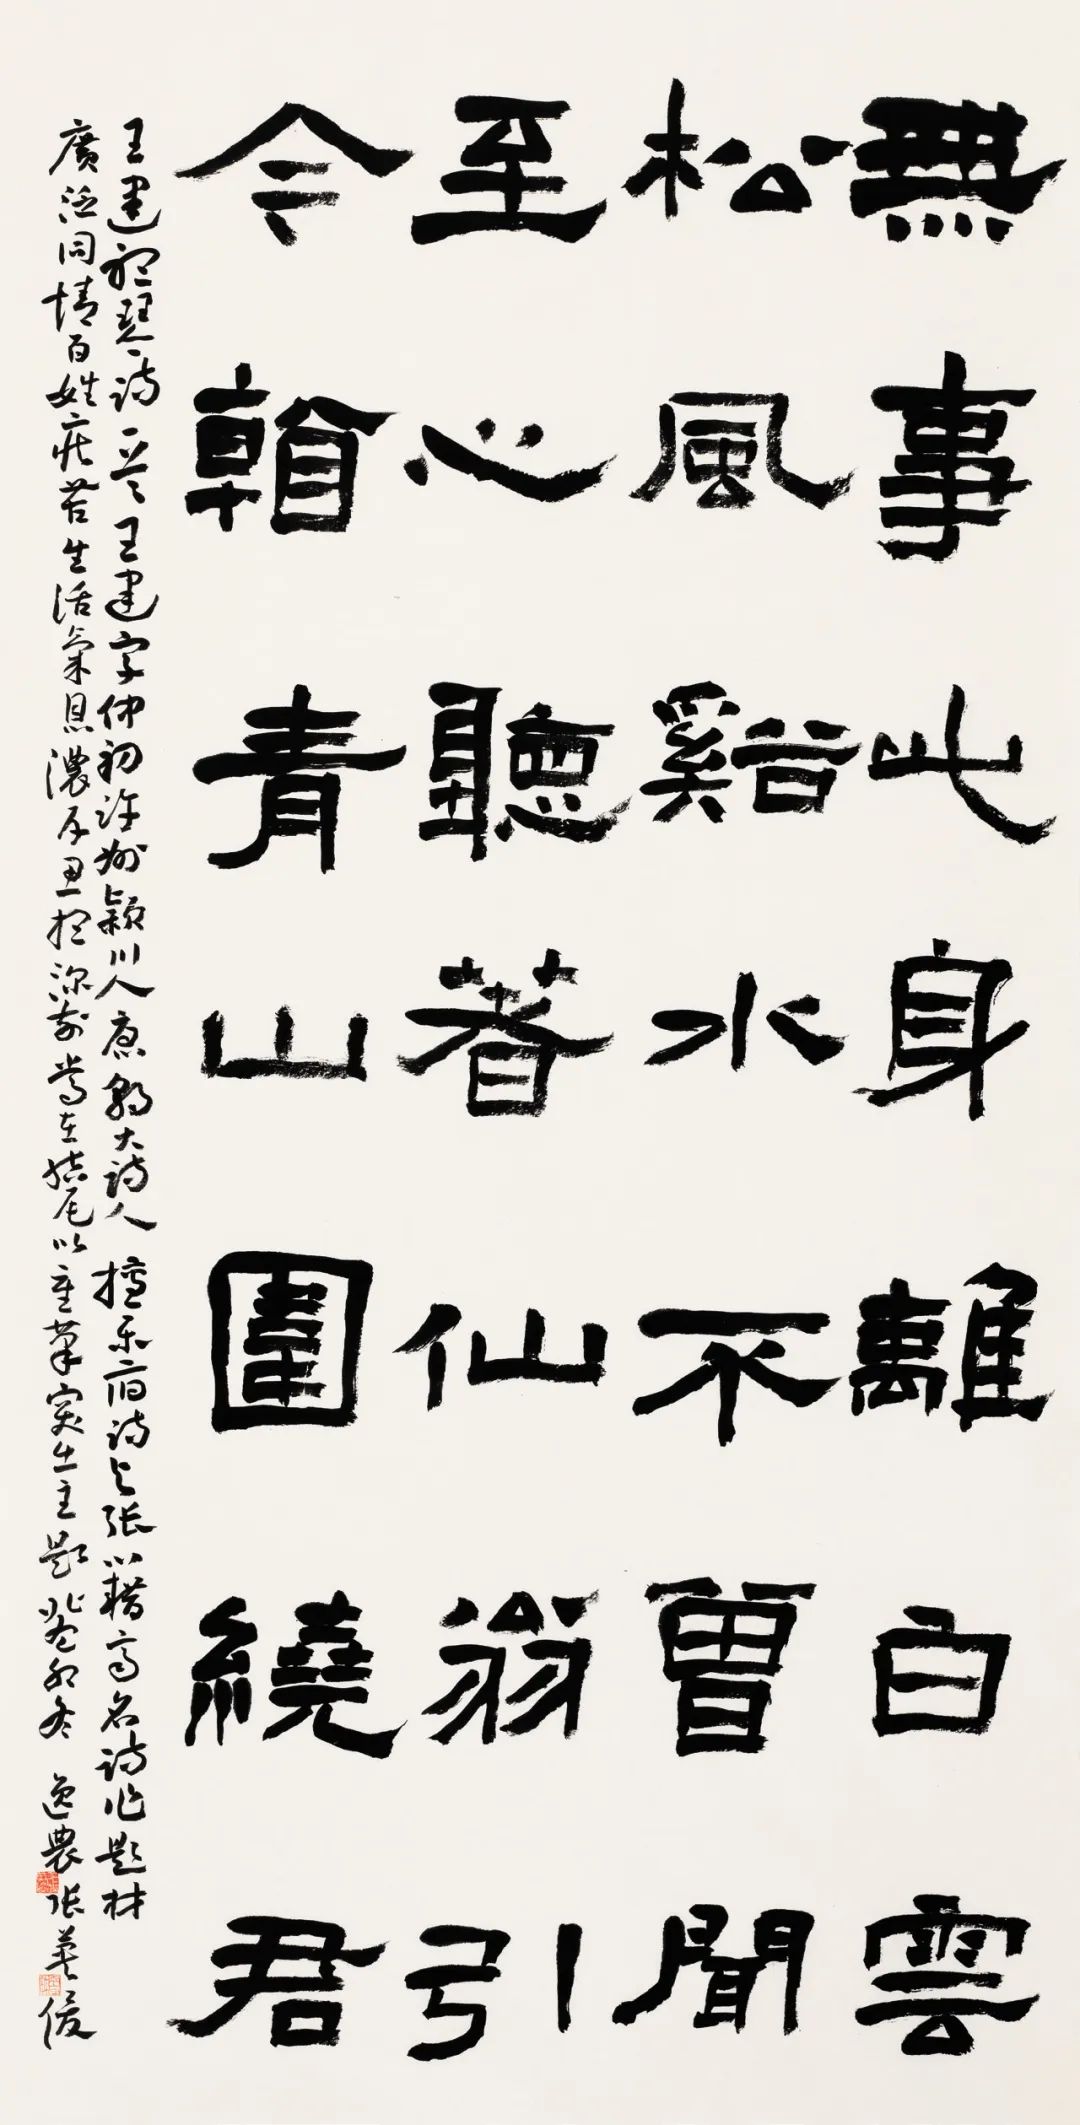 無事此身離白雲
松風谿水不曾聞
至心聽著仙翁引
今看青山圍繞君
王建聽琴詩一首王建字仲初許州潁川人唐朝大詩人擅樂府詩與張籍齊名詩作題材
廣泛同情百姓疾苦生活氣息濃厚思想深刻常在結尾以重筆突出主題癸卯冬逸農張英俊